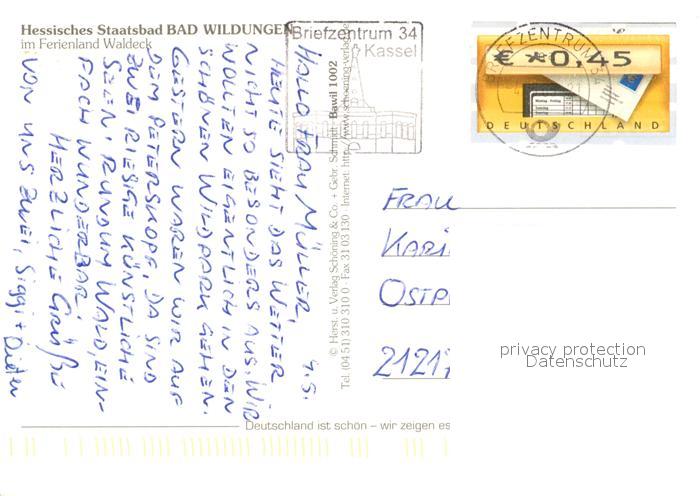 Hessisches Staatsbad BAD WILDUNGEN
im Ferienland Waldeck
Briefzentrum 34
Kassel
BRIEFZENTRUM 34
€ *0,45
DEUTSCHLAND
HALLO FRAU MÜLLER, 4.9.
HEUTE SIEHT DAS WETTER
NICHT SO BESONDERS AUS. WIR
WOLLTEN EIGENTLICH IN DEN
SCHÖNEN WILDPARK GEHEN.
GESTERN WAREN WIR AUF
DEM PETERSKOPF, DA SIND
ZWEI RIESIGE KÜNSTLICHE
SEEN! RUNDUM WALD, EIN-
FACH WUNDERBAR!
HERZLICHE GRÜßE
VON UNS ZWEI, Siggi + Dieter
© Hörst. u. Verlag Schöning & Co. + Gebr. Schmidt Bawil 1002
Tel. (04 51) 310 310 0 · Fax 31 03 130 · Internet: http://www.schoening-verlag.de
FRAU
KARI
OSTP
2121
privacy protection
Datenschutz
Deutschland ist schön – wir zeigen es